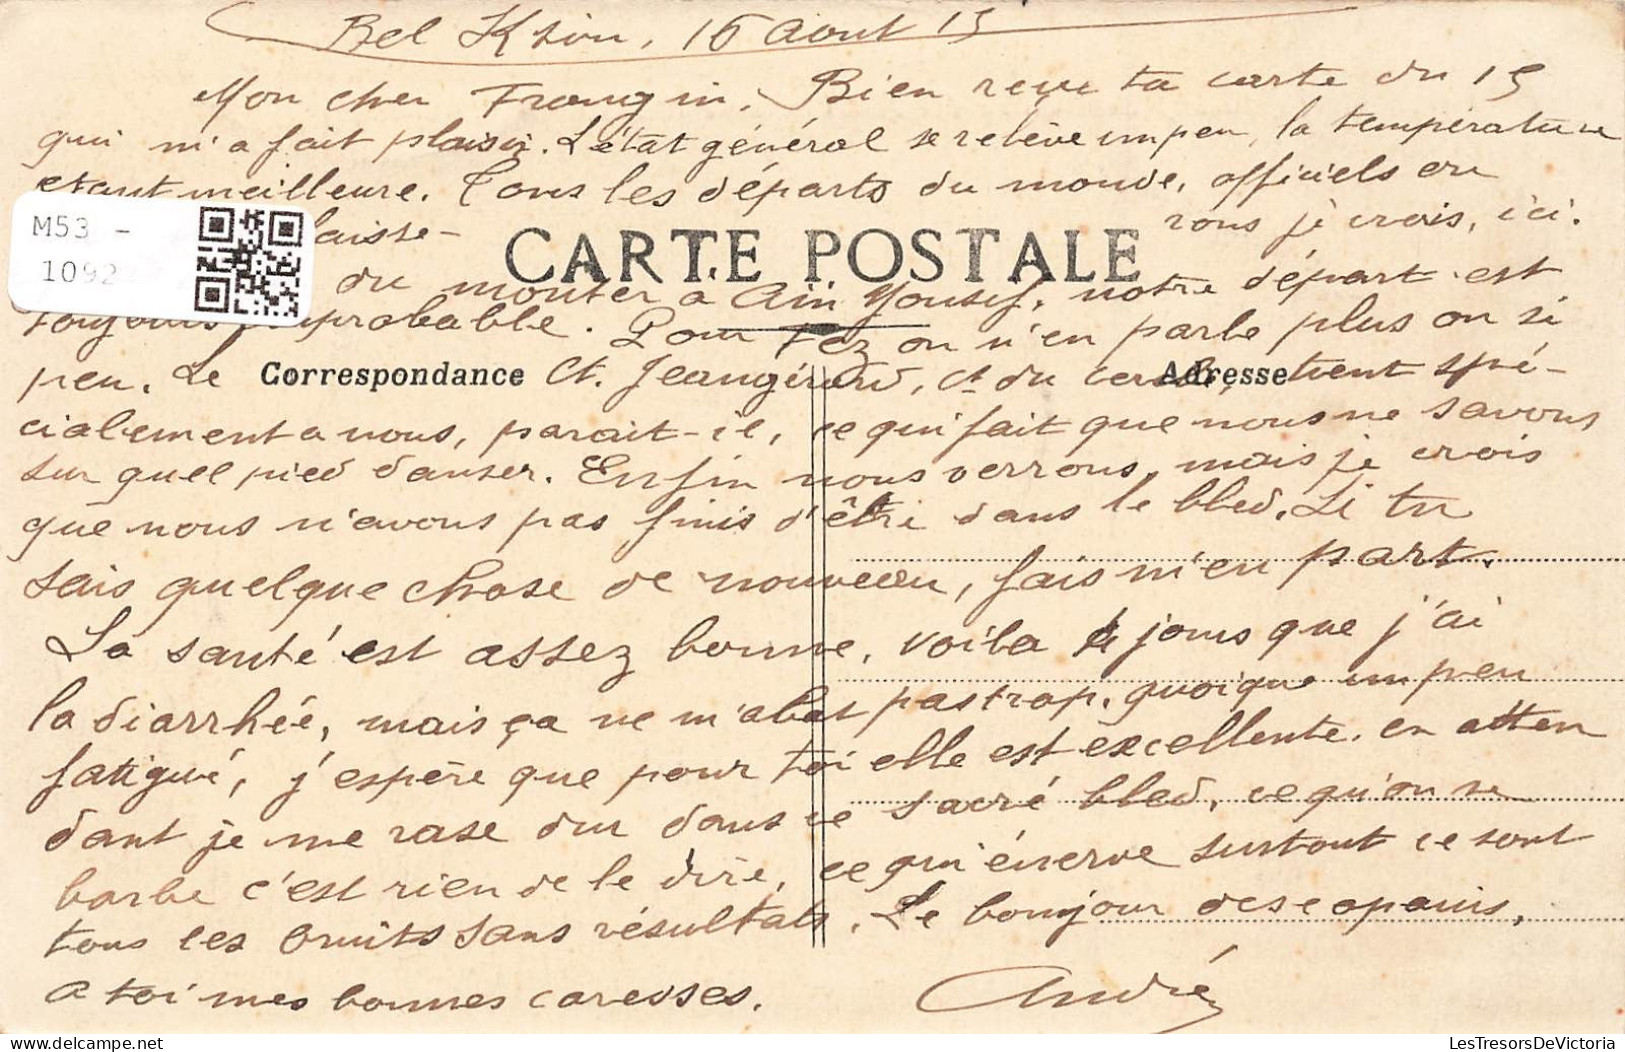 Bel Ksiri, 16 Aout 15
Mon cher Frangin, Bien reçu ta carte du 15
qui m'a fait plaisir. L'état général se relève un peu, la température
étant meilleure. Tous les départs du monde, officiels ou
laisse- rons je crois, ici.
M53 -
1092
CARTE POSTALE
du monter a Ain Yousef, notre départ est
toujours improbable. Pour Fez on n'en parle plus ou si
peu. Le Ct. Jeangérard, Ct du cercle, tient spé-
Correspondance Adresse
cialement a nous, parait-il, ce qui fait que nous ne savons
sur quel pied danser. Enfin nous verrons, mais je crois
que nous n'avons pas finis d'être dans le bled. Si tu
sais quelque chose de nouveau, fais m'en part.
La santé est assez bonne, voila jours que j'ai
la diarrhée, mais ça ne m'abat pas trop, quoique un peu
fatigué, j'espère que pour toi elle est excellente. en atten
dant je me rase dur dans ce sacré bled, ce qu'on se
barbe c'est rien de le dire, ce qui énerve surtout ce sont
tous ces bruits sans résultats. Le bonjour des copains,
a toi mes bonnes caresses.
André
LesTresorsDeVictoria.com